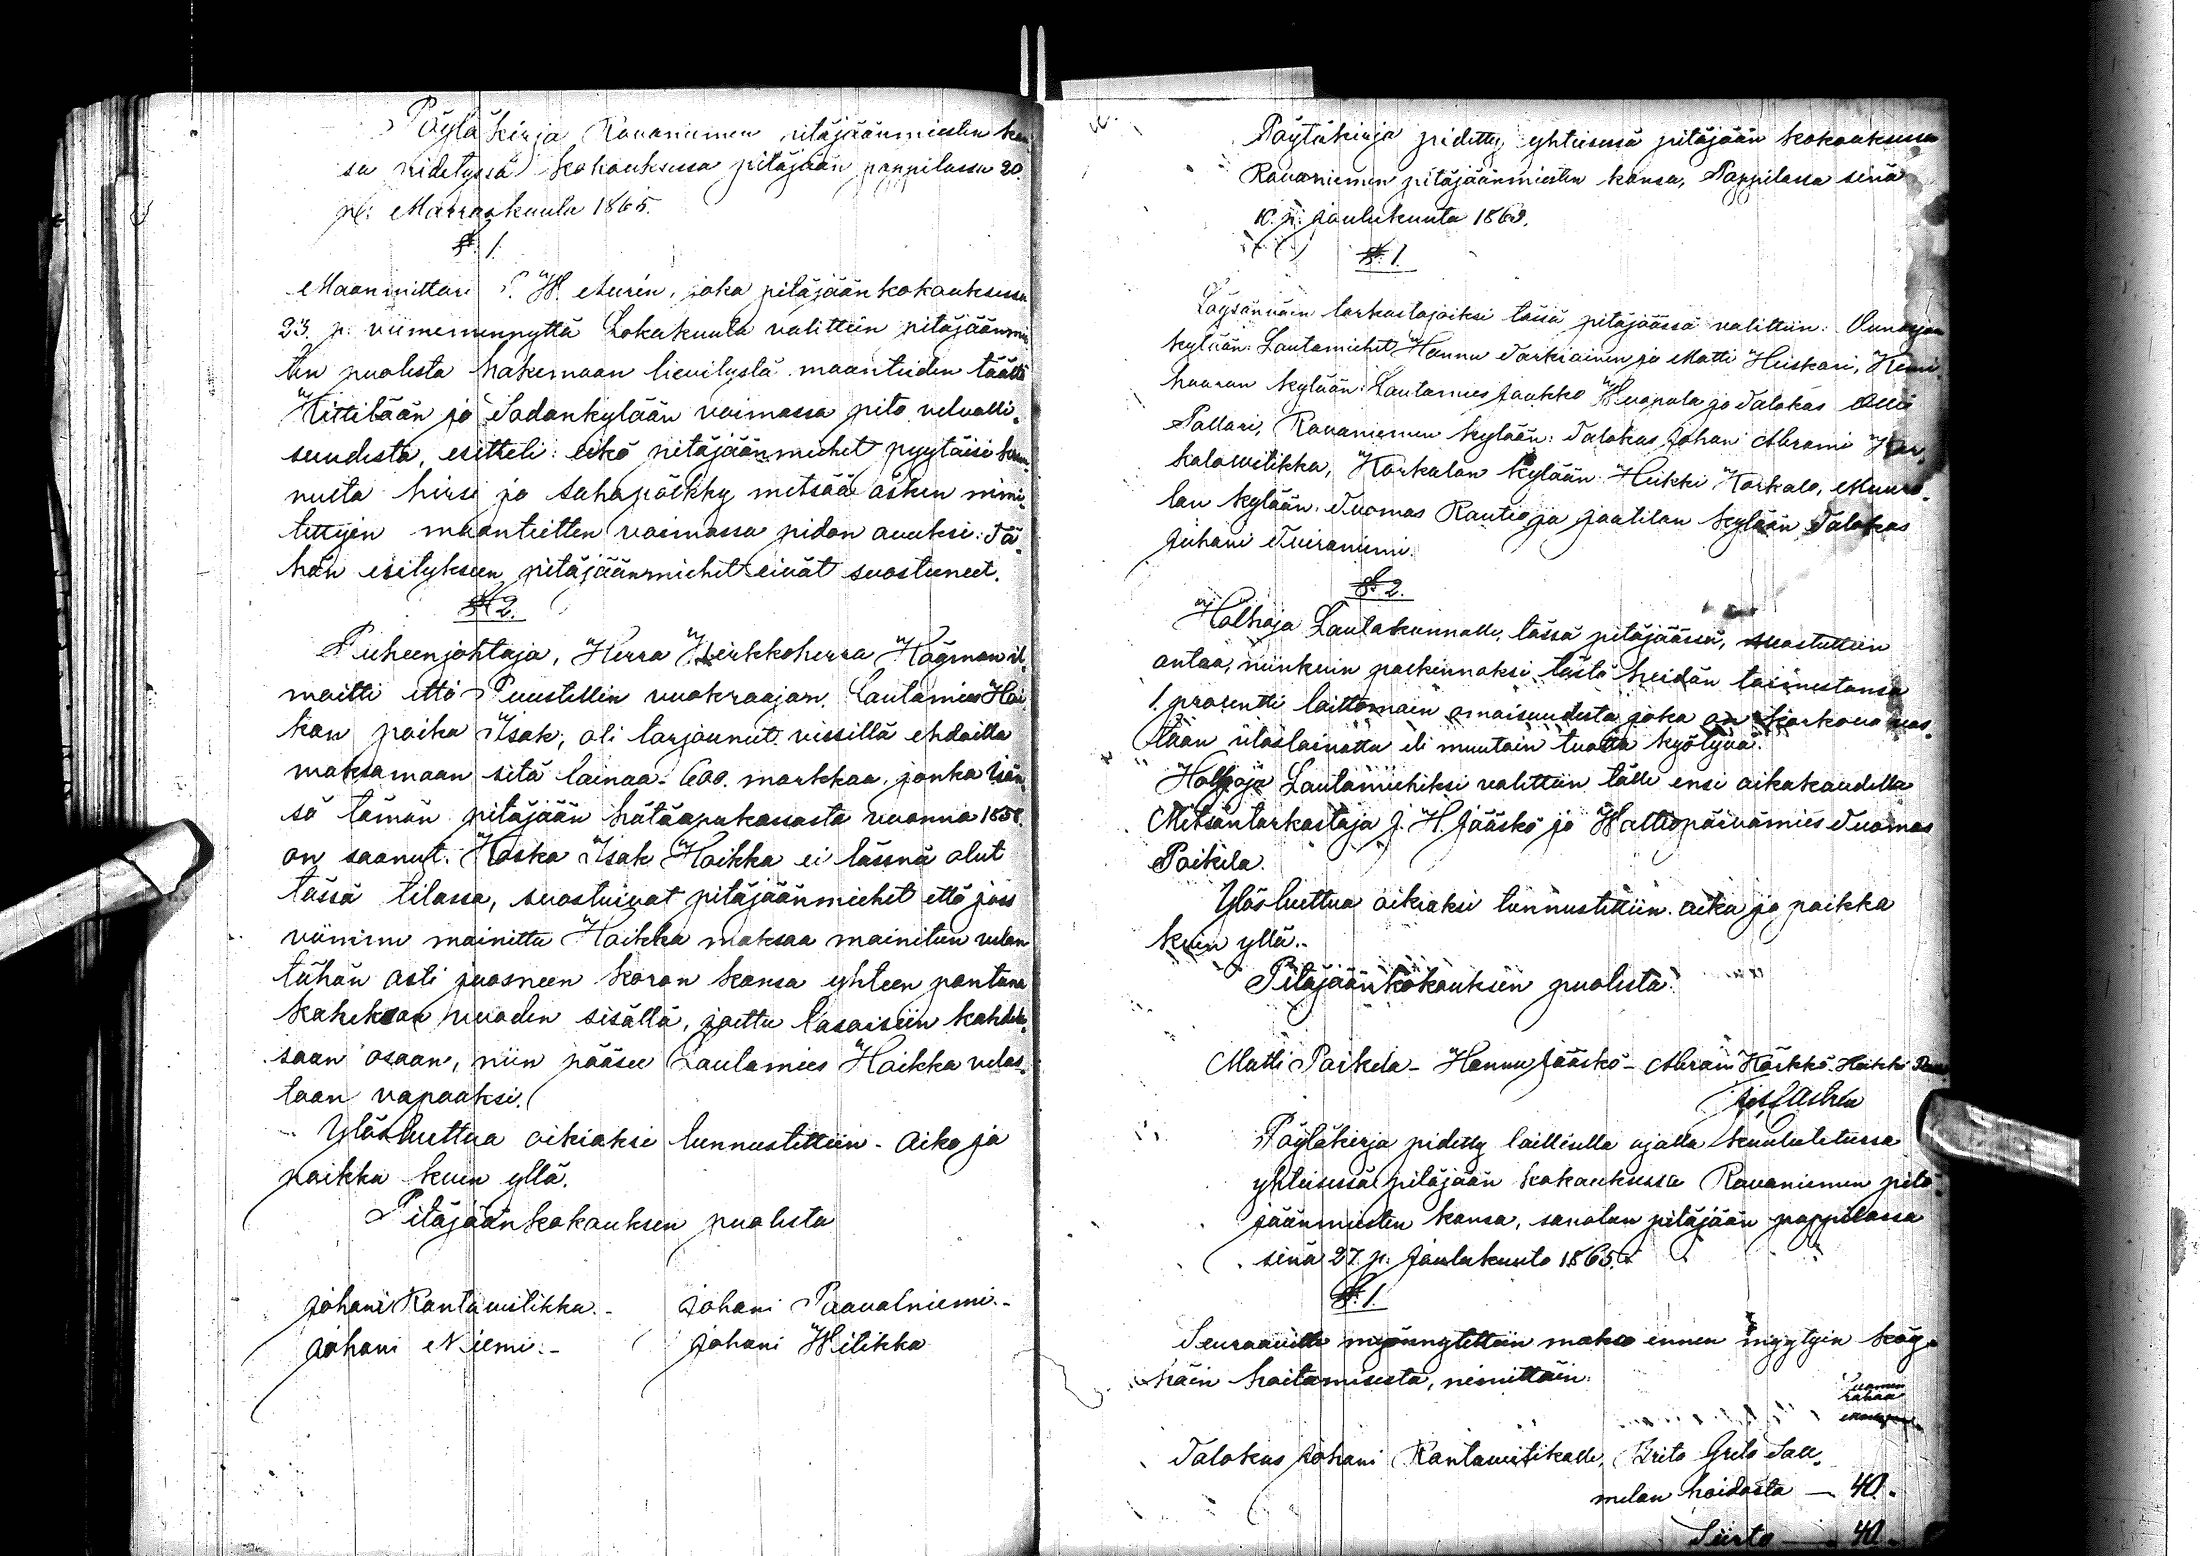 Pöytäkirja Rovaniemen pitäjäänmiesten kan
sa pidetyssä kokouksessa pitäjään pappilassa 20.
p: Marraskuuta 1865.
§. 1.
Maanmittari P. W. Aurén, joka pitäjäänkokouksessa
23. p: viimemennyttä Lokakuuta valittiin pitäjäänmies
ten puolesta hakemaan lievitystä maanteiden täältä
Kittilään ja Sodankylään voimassa pito velvolli-
suudesta, esitteli: eikö pitäjäänmiehet pyytäisi kruu-
nulta hirsi ja sahapölkky metsää äsken nimi-
tettyin maanteitten voimassa pidon avuksi: Tä-
hän esitykseen pitäjäänmiehet eivät suostuneet.
§ 2.
Puheenjohtaja, Herra Kirkkoherra Högman il-
moitti että Puustellin vuokraajan, Lautamies Hoi
kan poika Isak, oli tarjounut vissillä ehdoilla
maksamaan sitä lainaa 600. markkaa, jonka Isän-
sä tämän pitäjään hätäapukassasta vuonna 1858.
on saanut. Koska Isak Hoikka ei lässnä olut
tässä tilassa, suostuivat pitäjäänmiehet että joss
viimmu mainittu Hoikka maksaa mainitun velan
tähän asti juosneen koron kansa yhteen pantuna
kaheksan vuoden sisällä, jaettu tasaisiin kahdek-
saan osaan, niin pääsee Lautamies Hoikka velas-
taan vapaaksi.
Ylösluettua oikiaksi tunnustettiin - Aika ja
paikka kuin yllä.
Pitäjäänkokouksen puolesta
Johani Rantaviitikka.- Johani Paavalniemi.-
Johani Niemi.- Johani Wiitikka
Pöytäkirja pidetty yhteisessä pitäjään kokouksessa
Rovaniemen pitäjäänmiesten kansa, Pappilassa sinä
10. p: Joulukuuta 1865.
§. 1.
Löysänväin tarkastajoiksi tässä pitäjäässä valittiin: Ounasjoen
kylään: Lautamiehet Hannu Tarkiainen ja Matti Heiskari, Kemi-
haaran kylään: Lautamies Jaakko Wuopala ja Talokas Olli
Pallari, Rovaniemen kylään: Talokas Johan Abrami Kor-
kalowiitikka, Korkalon kylään: Heikki Korkalo, Muuro-
lan kylään: Tuomas Rautio ja Jaatilan kylään Talokas
Juhani Tuiraniemi.
§ 2.
Holhoja Lautakunnalle, tässä pitäjäässä, suostuttiin
antaa, niinkuin palkinnoksi tästä heidän toimestansa
1. prosentti laittomain omaisuudesta joka on korkoua vas-
taan uloslainattu eli muutoin tuotta hyötyvä.
Holhoja Lautamiehiksi valittiin tälle ensi aikakaudella
Metsäntarkastaja J. H. Jääskö ja Waltiopäivämies Tuomas
Poikela.
Ylösluettua oikiaksi tunnustettiin. aika ja paikka
kuin yllä.-
Pitäjäänkokouksen puolesta:
Matti Poikela - Hannu Jääskö - Abram Körkkö. Heikki
Pöytäkirja pidetty laillisella ajalla kuulutetussa
yhteisessä pitäjään kokouksessa Rovaniemen pitä-
jäänmiesten kansa, sanotun pitäjään pappilassa
sinä 27. p: Joulukuuta 1865.
§. 1.
Seuraaville myönnytettiin makso ennen myytyin köy-
häin hoitamisesta, nimittäin:
Suomen
rahaa
Talokas Johani Rantaviitikalle, Brita Greta Sall-
melan hoidosta — 40.
Siirto — 40.